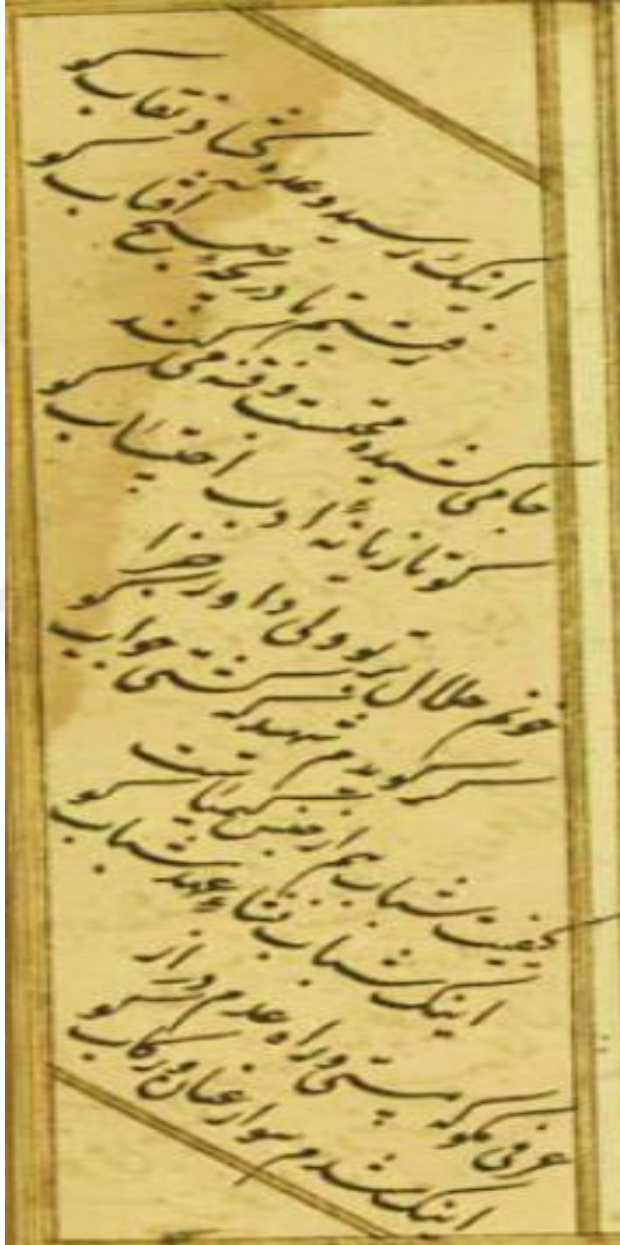 اینک رسید وعده نقاب کو
رفتیم تا دریچهٔ صبح آفتاب کو
جامی کشیده محتسب و فتنه می کند
کو تازیانهٔ ادب احتساب کو
خونم حلال بر تو ولی داور جزا
گر گویدم شهید که گشتی جواب کو
کیفیت شباب هم از جنس کیمیاست
اینک شراب نشاء عهد شباب کو
عرفی مگو که پستی و راه عدم دراز
اینک شدم سوار عنان و رکاب کو